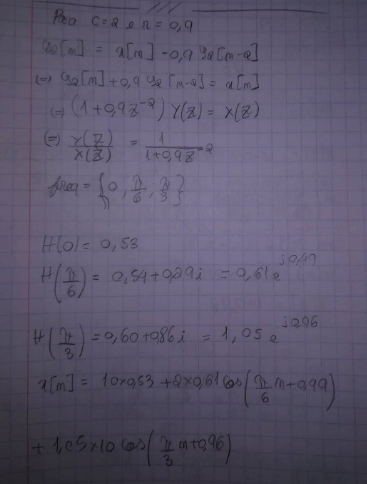 Para c=2 e r=0,9
y2[n] = x[n] -0,9 y2[n-2]
(=) y2[n]+0,9 y2[n-2] = x[n]
(=) (1+0,9z^-2) Y(z) = X(z)
(=) Y(z)/X(z) = 1/(1+0,9z^-2)
freq = {0, π/6, π/3}
H(0) = 0,53
H(π/6) = 0,54+0,29i = 0,61e^
H(π/3) = 0,60+0,86i = 1,05e^j0,96
x[n] = 10×0,53 + 2×0,61 cos(π/6 n+0,49)
+ 1,05×10 cos(π/3 n+0,96)